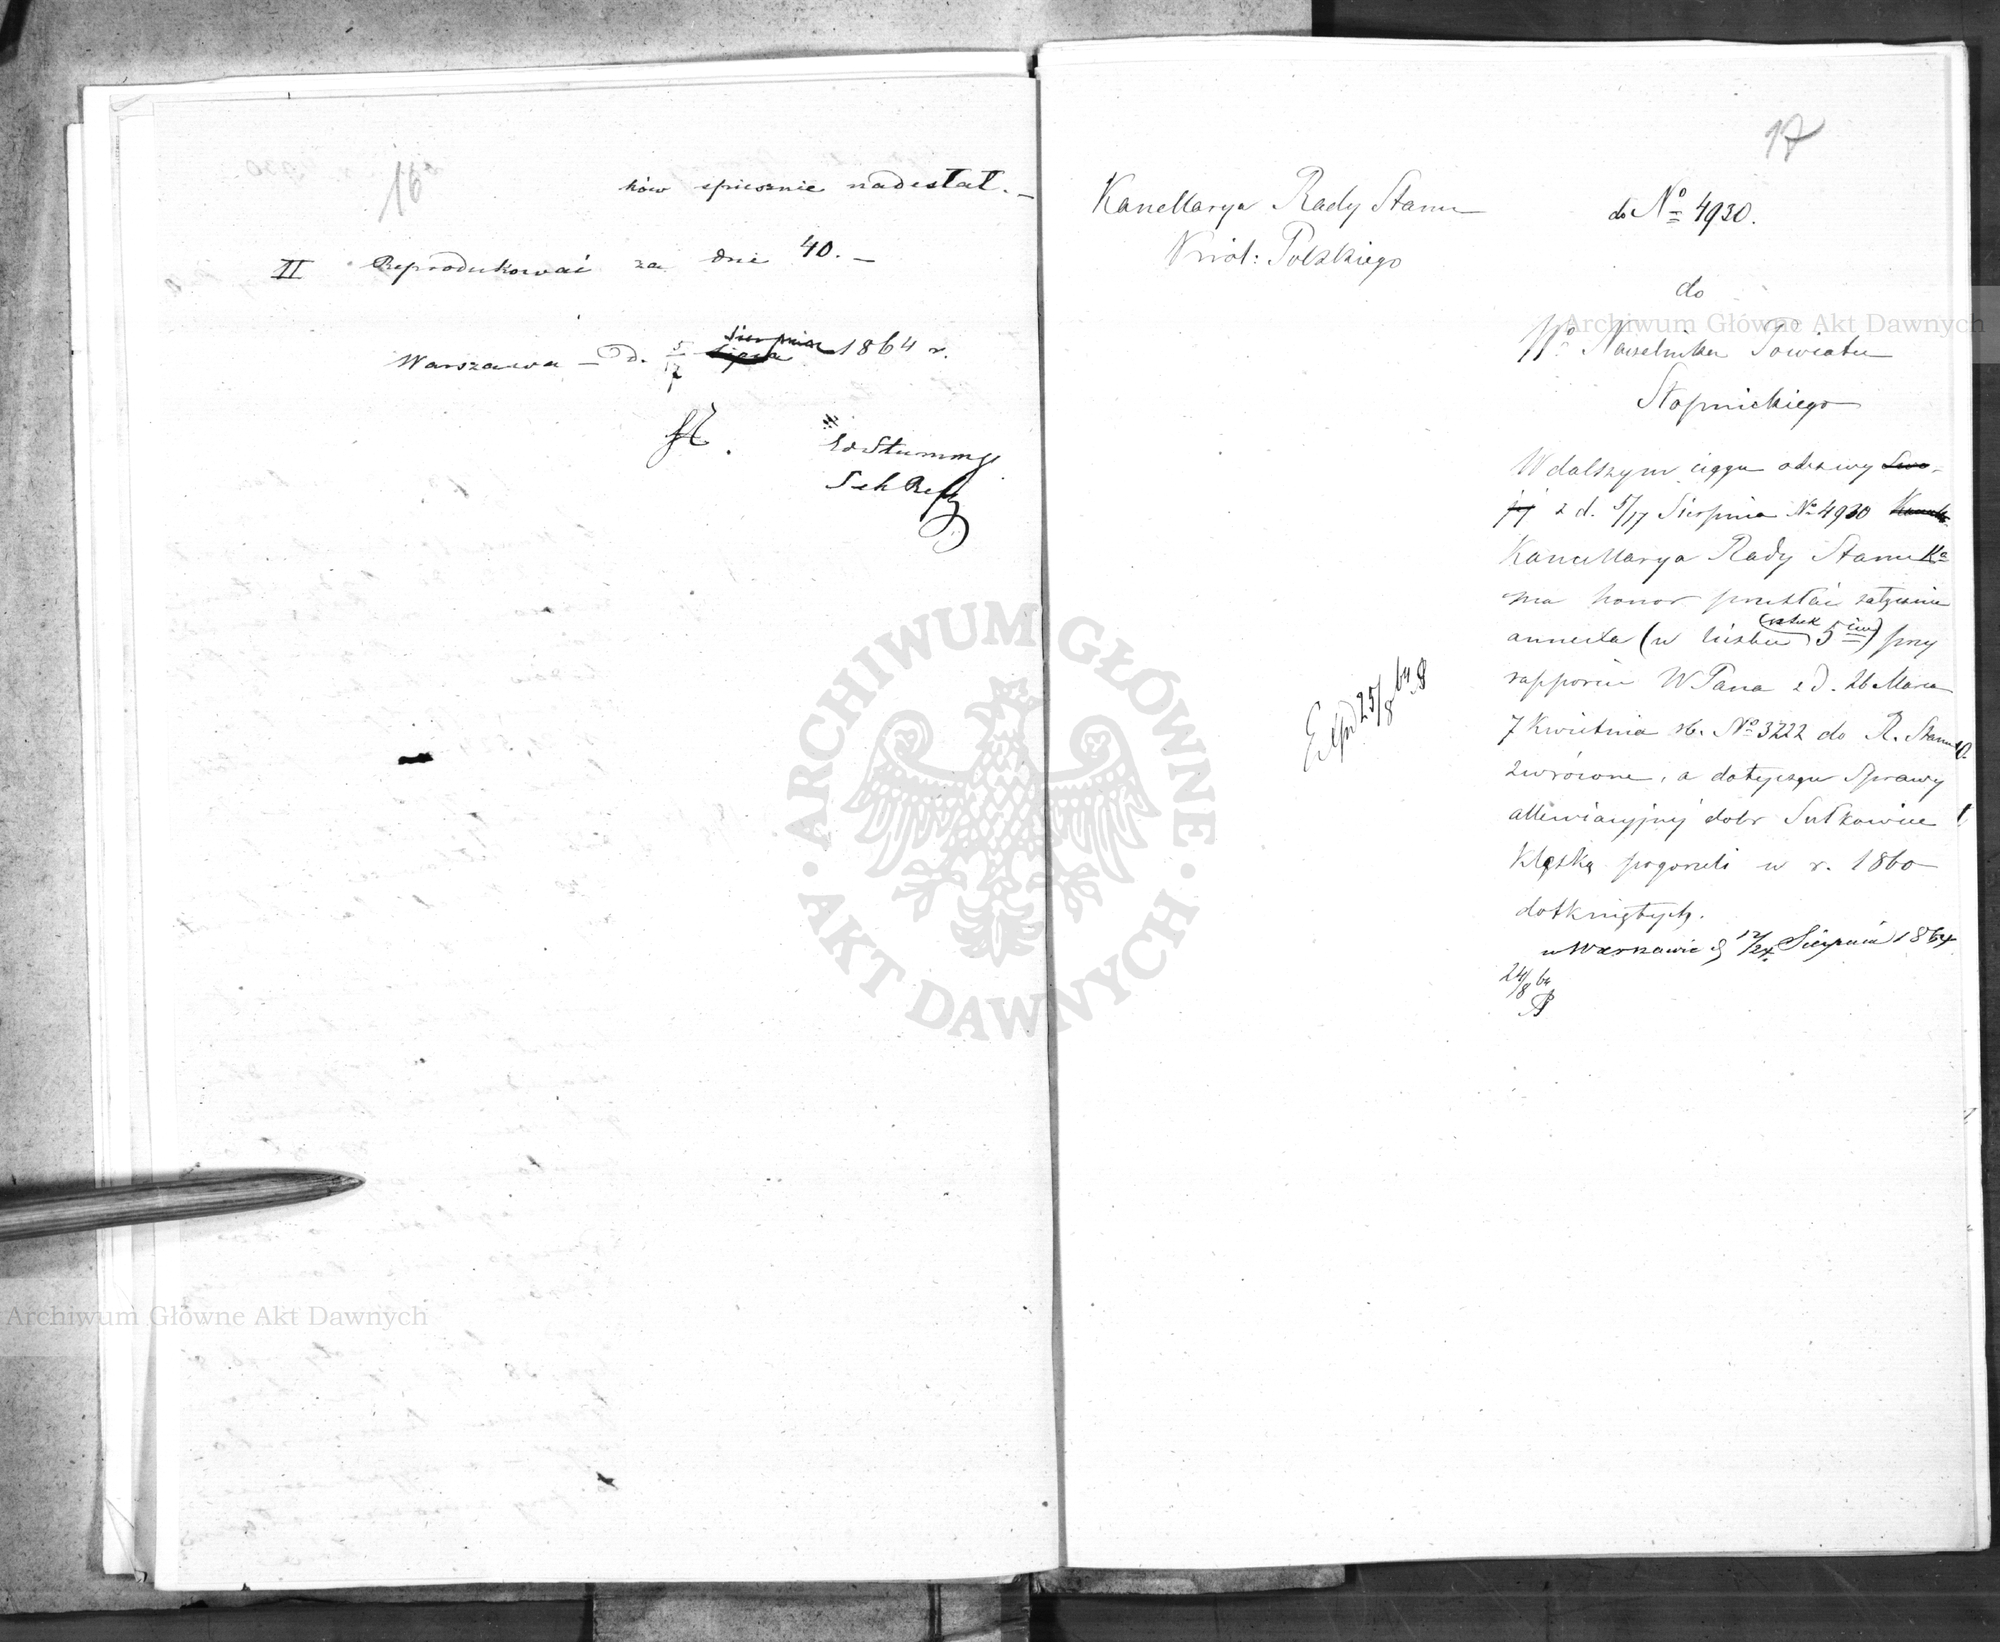 16
ków spiesznie nadesłał. —
II Reprodukować za dni 40. —
Sierpnia
Warszawa — d. 5/17 Lipca 1864 r.
Ed Stummer
Sek Ref
17
Kancellarya Rady Stanu
Król: Polskiego
do № 4930.
do
Wo Naczelnika Powiatu
Stopnickiego
W dalszym ciągu odezwy Swo-
jej z d. 5/17 Sierpnia № 4930
Kancellarya Rady Stanu
ma honor przesłać załączone
annexa (w liczbie sztuk 5ciu) przy
rapporcie W Pana z d. 26 Marca
7 Kwietnia rb. № 3222 do R. Stanu
zwrócone, a dotyczące Sprawy
allewiacyjnej dóbr Sułkowice
klęską pogorzeli w r. 1860
dotkniętych.
w Warszawie d 12/24 Sierpnia 1864
24/8 64
Exp 25/8 64
Archiwum Główne Akt Dawnych
Archiwum Główne Akt Dawnych
ARCHIWUM GŁÓWNE
AKT DAWNYCH